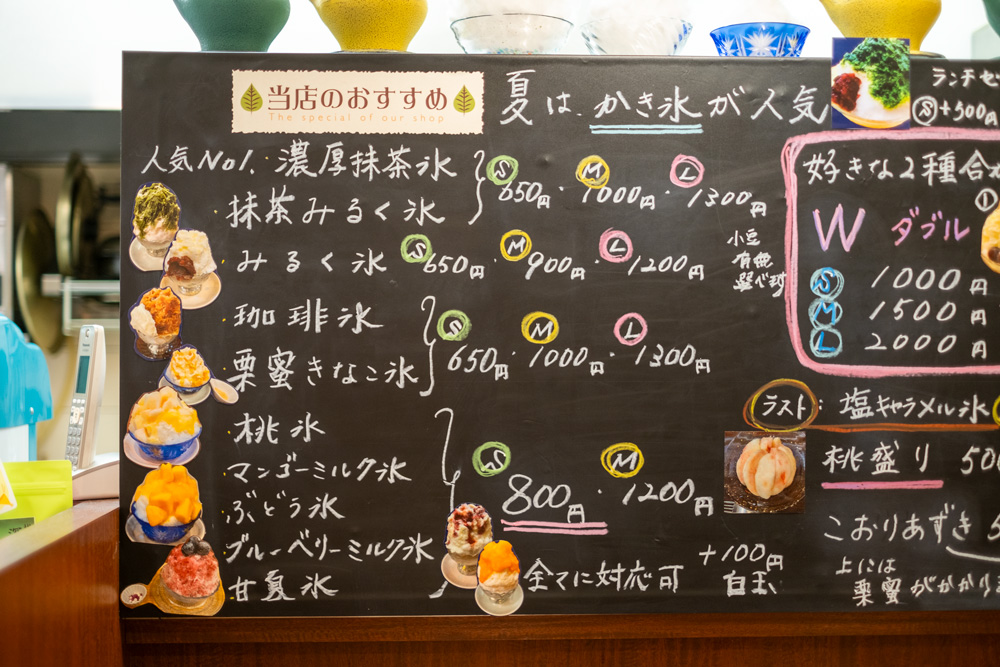 当店のおすすめ
The special of our shop
夏は、かき氷が人気
人気No1. 濃厚抹茶氷
抹茶みるく氷
S 650円・M 1000円・L 1300円
みるく氷 S 650円・M 900円・L 1200円
小豆
有無
選べます
珈琲氷
栗蜜きなこ氷
S 650円・M 1000円・L 1300円
桃氷
マンゴーミルク氷
ぶどう氷
ブルーベリーミルク氷
甘夏氷
S 800円・M 1200円
全てに対応可
+100円
白玉
ランチセ
S+500円
好きな2種合わ
①
W ダブル
S 1000円
M 1500円
L 2000円
ラスト:塩キャラメル氷
桃盛り 500
こおりあずき
上には
栗蜜がかかり